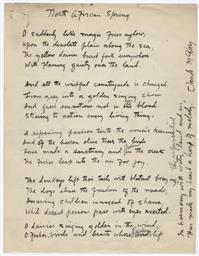 North African Spring
O suddenly like magic fires aglow,
Upon the desolate plain along the sea,
The yellow daisies burst forth everywhere
With flaming gaiety over the land.
And all the wistful countryside is changed
From grey into a golden singing choir
And fresh sensations rest in its blood
Stirring to action every living thing.
A repeating passion tents the women's hearing
And of the barren olive trees the birds
Have made a sanctuary and in the creek
The fishes leap into the air for joy.
The donkeys lift their tails with blatant bray
The dogs abuse the freedom of the roads,
Amazing children innocent of shame,
While decent persons pass with eyes averted.
O daisies singing golden in the wind,
O fishes, birds and beasts whose
Claude McKay
In harmony with
Has made my heart a harp of melody.